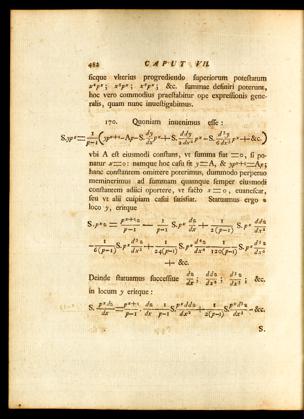 482 CAPUT VII.
sicque vlterius progrediendo superiorum potestatum
x⁴pˣ; x⁵pˣ; x⁶pˣ; &c. summae definiri poterunt,
hoc vero commodius praestabitur ope expressionis gene-
ralis, quam nunc inuestigabimus.
170. Quoniam inuenimus esse:
S.ypˣ = 1/(p−1) (ypˣ⁺¹ − Ap − S. dy/dx pˣ + S. ddy/2dx² pˣ − S. d³y/6dx³ pˣ + &c.)
vbi A est eiusmodi constans, vt summa fiat = 0, si po-
natur x = 0: namque hoc casu fit y = A, & ypˣ⁺¹ = Ap;
hanc constantem omittere poterimus, dummodo perpetuo
meminerimus ad summam quamque semper eiusmodi
constantem adiici oportere, vt facto x = 0, euanescat,
seu vt alii cuipiam casui satisfiat. Statuamus ergo z
loco y, eritque
S.pˣz = pˣ⁺¹z/(p−1) − 1/(p−1) S.pˣ dz/dx + 1/2(p−1) S.pˣ ddz/dx²
− 1/6(p−1) S.pˣ d³z/dx³ + 1/24(p−1) S.pˣ d⁴z/dx⁴ − 1/120(p−1) S.pˣ d⁵z/dx⁵
+ &c.
Deinde statuamus successiue dz/dx; ddz/dx²; d³z/dx³; &c.
in locum y eritque:
S. pˣdz/dx = pˣ⁺¹/(p−1) · dz/dx − 1/(p−1) S. pˣddz/dx² + 1/2(p−1) S. pˣd³z/dx³ − &c.
S.